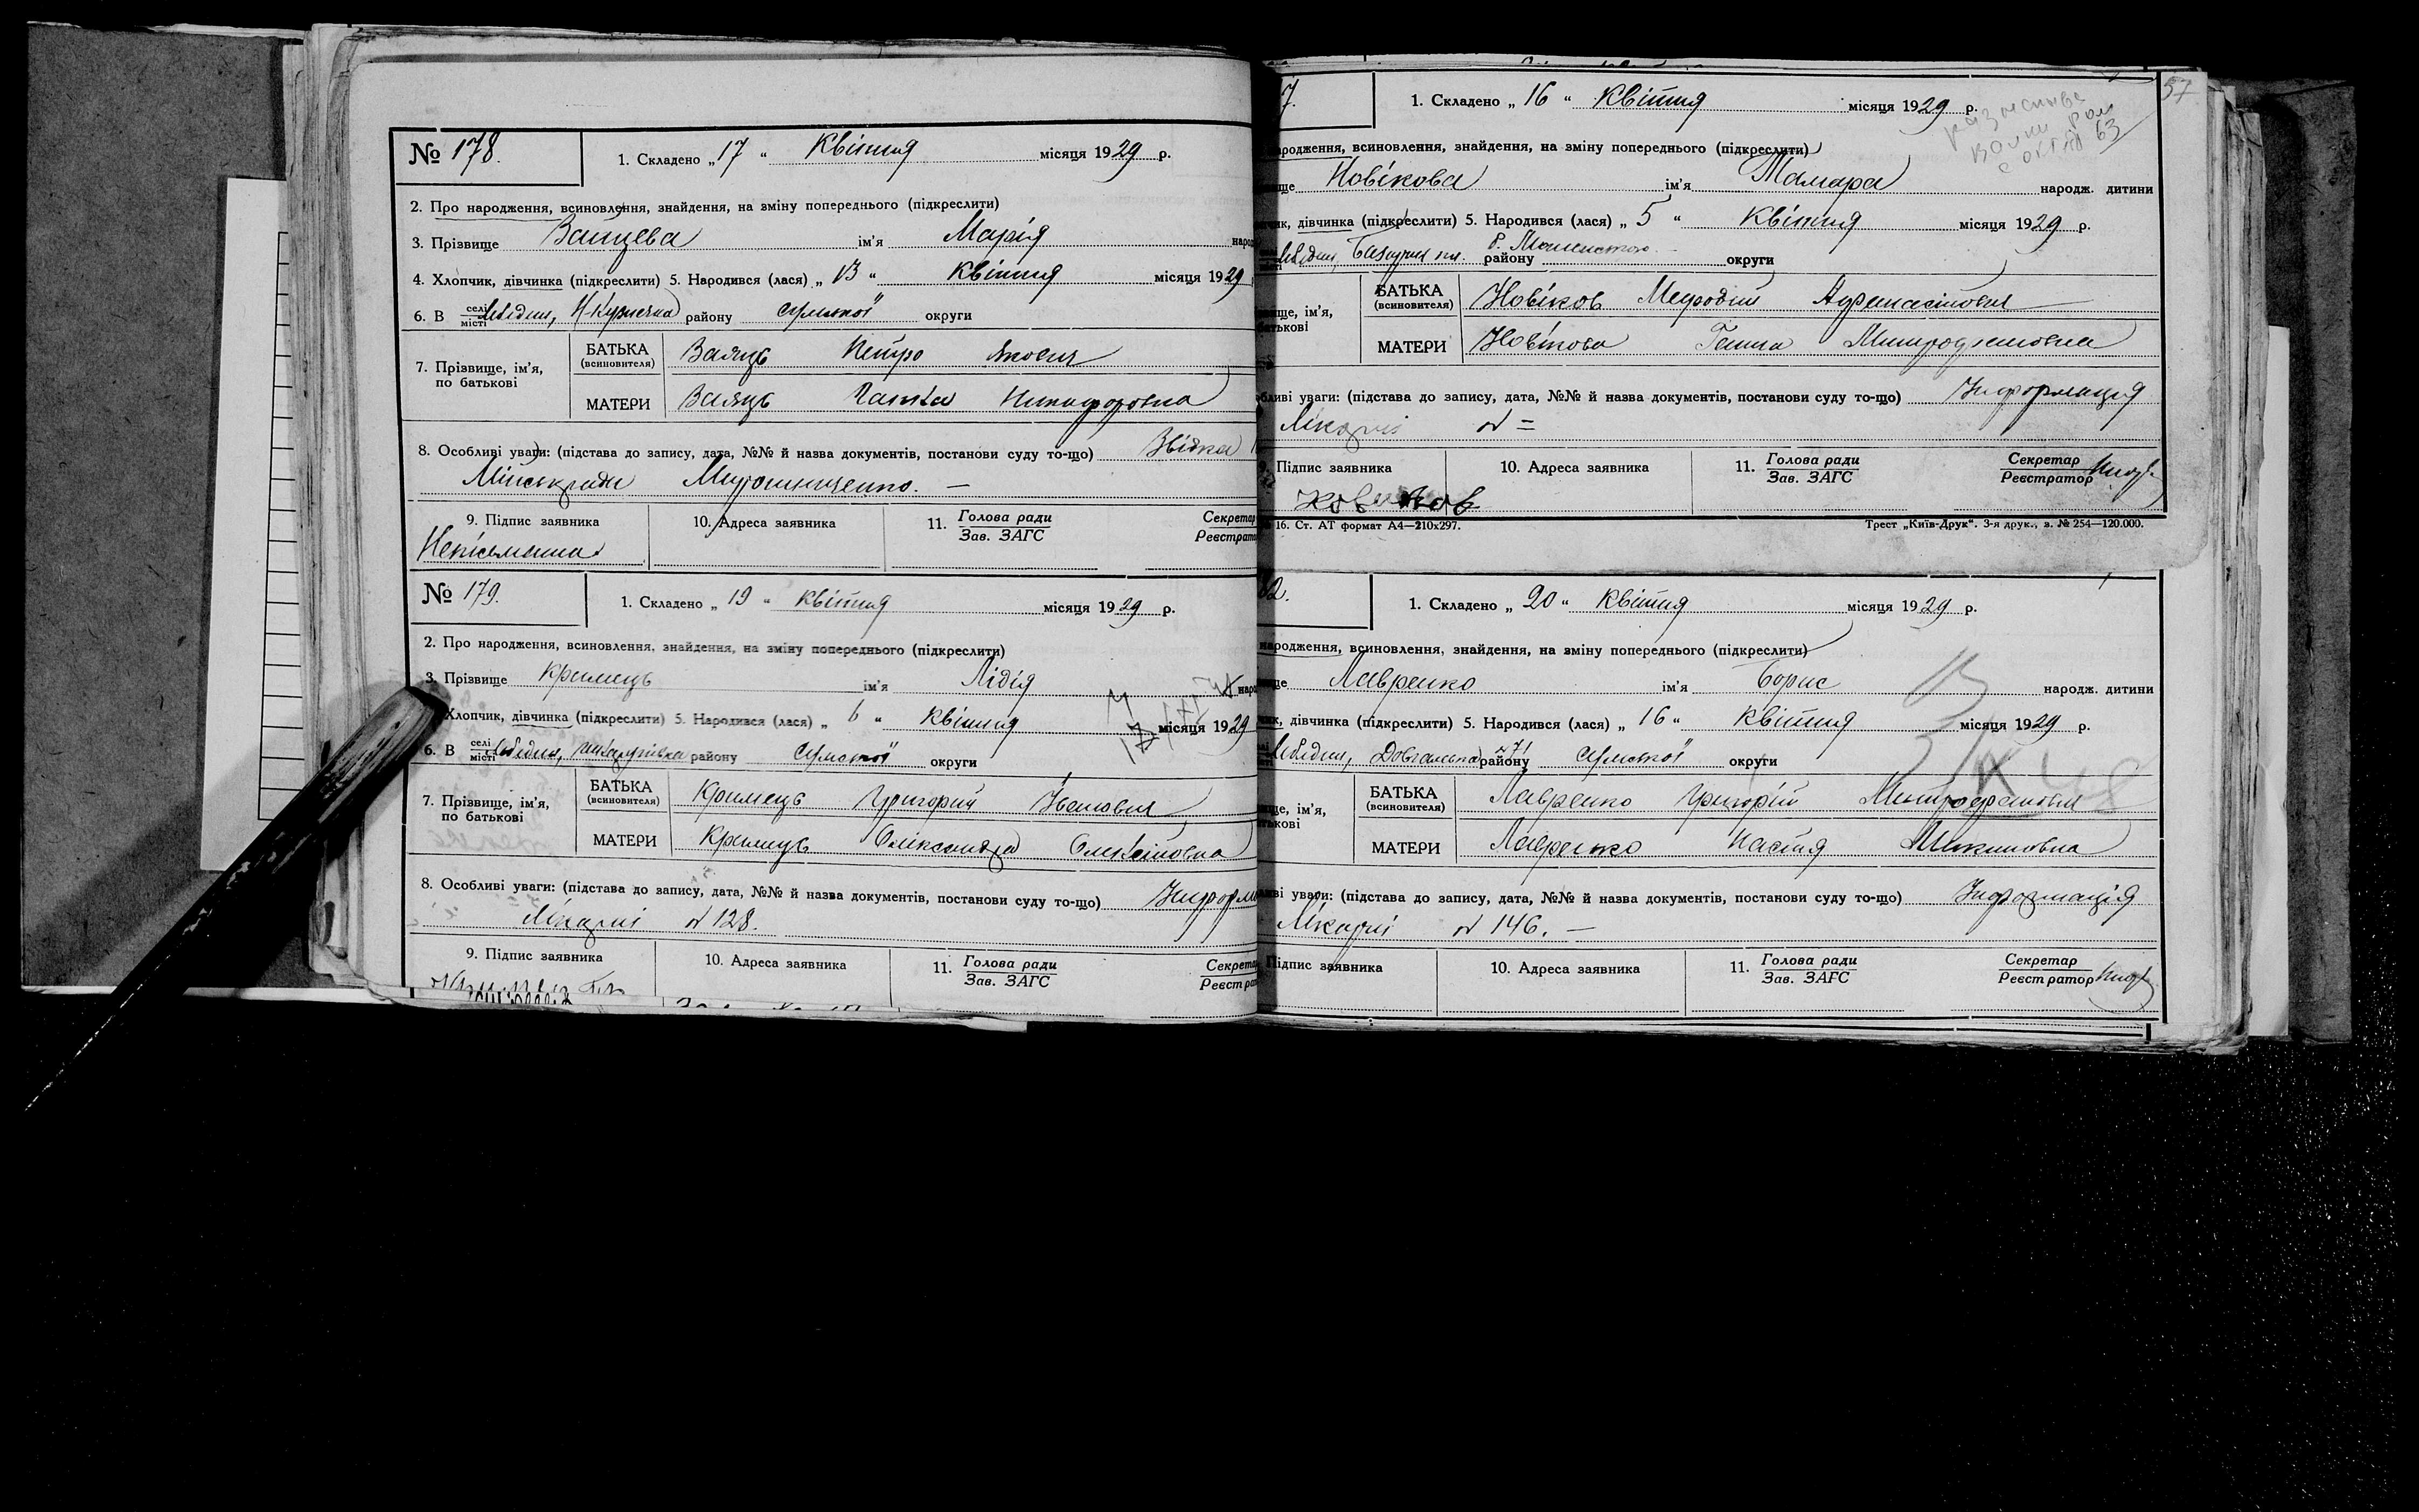 № 178.
1. Складено „ 17 “ Квітня місяця 1929 р.
2. Про народження, всиновлення, знайдення, на зміну попереднього (підкреслити)
3. Прізвище ім'я Марія
4. Хлопчик, дівчинка (підкреслити) 5. Народився (лася) „ 13 “ Квітня місяця 1929
6. В селі місті Лебедин, району Сумської округи
7. Прізвище, ім'я, по батькові
БАТЬКА (всиновителя) Заяць Петро Якович
МАТЕРИ Заяць Никифоровна
8. Особливі уваги: (підстава до запису, дата, №№ й назва документів, постанови суду то-що)
Міськради Мирошниченко. —
9. Підпис заявника 10. Адреса заявника 11. Голова ради Зав. ЗАГС
Неписьменна
№ 179.
1. Складено „ 19 “ Квітня місяця 1929 р.
2. Про народження, всиновлення, знайдення, на зміну попереднього (підкреслити)
3. Прізвище Кримець ім'я Лідія
Хлопчик, дівчинка (підкреслити) 5. Народився (лася) „ 6 “ Квітня місяця 1929
6. В селі місті Лебедин, району Сумської округи
7. Прізвище, ім'я, по батькові
БАТЬКА (всиновителя) Кримець Григорий Іванович
МАТЕРИ Кримець Олександра Олексіївна
8. Особливі уваги: (підстава до запису, дата, №№ й назва документів, постанови суду то-що)
Лікарні № 128.
9. Підпис заявника 10. Адреса заявника 11. Голова ради Зав. ЗАГС
57
7.
1. Складено „ 16 “ Квітня місяця 1929 р.
63
всиновлення, знайдення, на зміну попереднього (підкреслити)
Новікова ім'я Тамара народж. дитини
дівчинка (підкреслити) 5. Народився (лася) „ 5 “ Квітня місяця 1929 р.
району округи
БАТЬКА (всиновителя) Новіков Мефодий Афанасієвич
МАТЕРИ Новікова Ганна Митрофановна
уваги: (підстава до запису, дата, №№ й назва документів, постанови суду то-що) Інформація
Лікарні № =
Підпис заявника 10. Адреса заявника 11. Голова ради Зав. ЗАГС Секретар Реєстратор
Новиков
16. Ст. АТ формат А4—210х297. Трест „Київ-Друк“. 3-я друк., з. № 254—120.000.
1. Складено „ 20 “ Квітня місяця 1929 р.
народження, всиновлення, знайдення, на зміну попереднього (підкреслити)
Лавренко ім'я Борис народж. дитини
дівчинка (підкреслити) 5. Народився (лася) „ 16 “ Квітня місяця 1929 р.
Лебедин, району Сумської округи
БАТЬКА (всиновителя) Лавренко Григорій Митрофанович
МАТЕРИ Лавренко Настя
уваги: (підстава до запису, дата, №№ й назва документів, постанови суду то-що) Інформація
Лікарні № 146. —
Підпис заявника 10. Адреса заявника 11. Голова ради Зав. ЗАГС Секретар Реєстратор